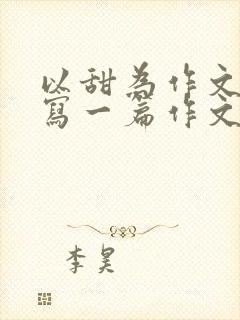 以甜為作文
寫一篇作文
李昊